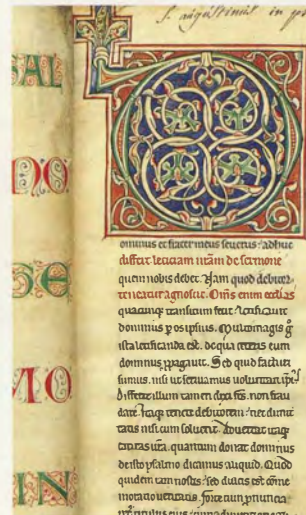 S. augustinus in
AL
NO
SE
MO
IN
D
ominus et frater meus severus: adhuc
differt leticiam nr̄am de sermone
quem nobis debet. Nam quod debitor
teneatur agnoscit. Om̄s enim eccl̄as
quacunq; transitum fecit letificavit
dominus p os ipsius. Multo magis g̊
ista letificanda est. de qua ceteris eum
dominus ꝓpagavit. Sed quid facturi
sumus. nisi ut serviamus voluntati ipi
Differt illum tamen dixi fr̄s. non frau
dare. itaq; tenete debitorem: nec dimit
tatis nisi cum solverit. Advertat itaq;
caritas vr̄a. quantum donat dominus
de isto psalmo dicamus aliquid. Quod
quidem iam nostis: sed dulcis est com̄e
moracio veritatis.
titulus eius